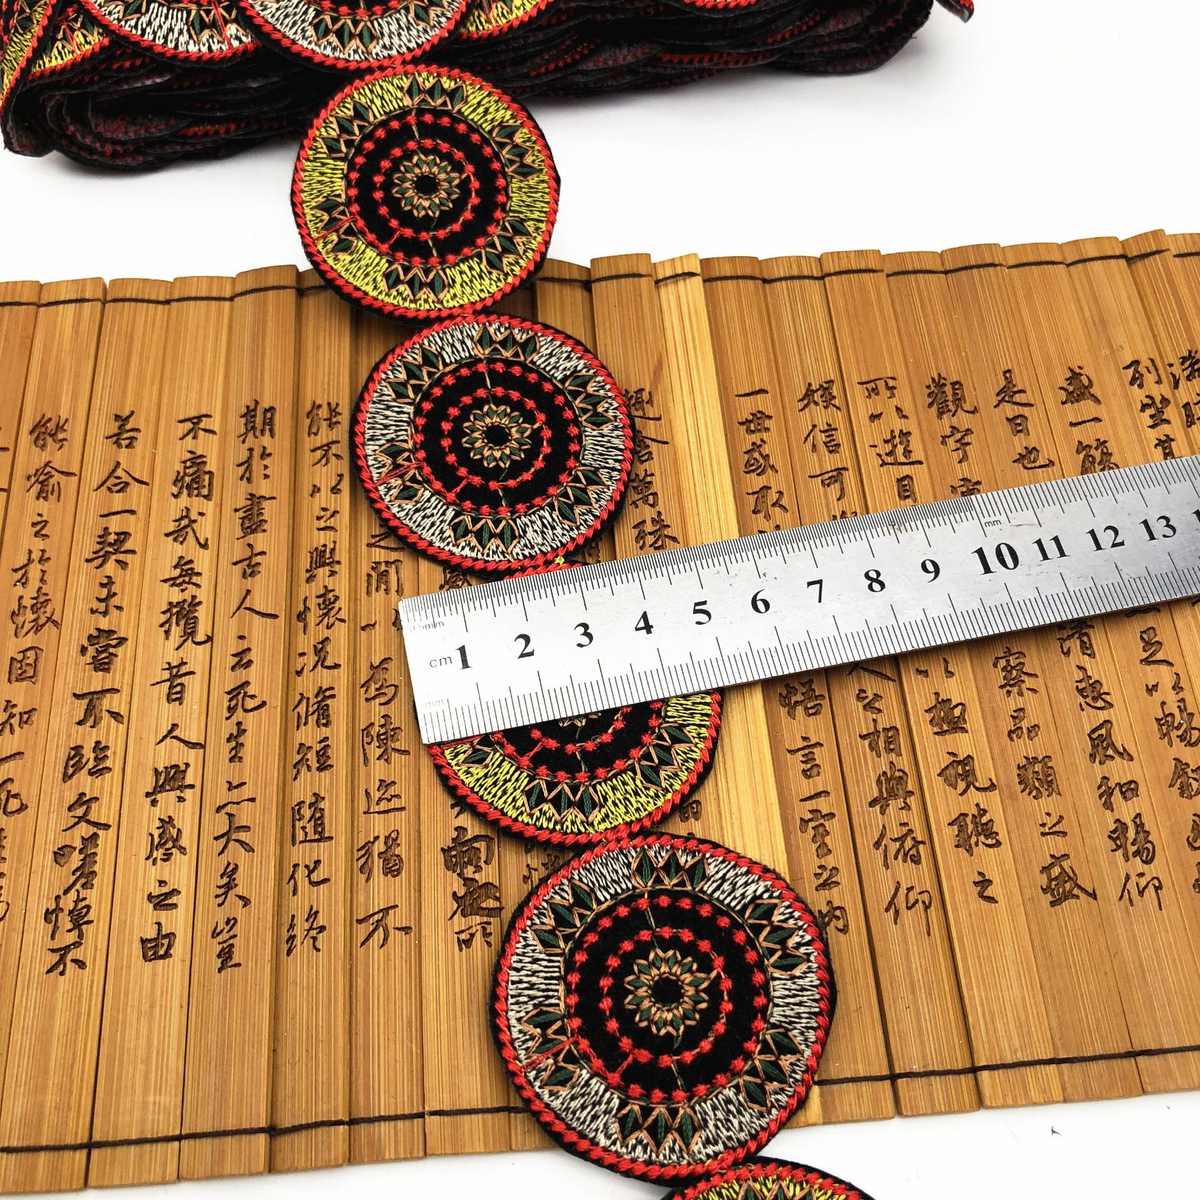 列坐其
足以暢敘
盛一觴
清惠風和暢仰
是日也
察品類之盛
觀宇宙
以極視聽之
所以遊目
人之相與俯仰
娛信可
悟言一室之內
一世或取
趣舍萬殊
之間
為陳迹猶不
能不以之興懷況脩短隨化終
期於盡古人云死生亦大矣豈
不痛哉每攬昔人興感之由
若合一契未嘗不臨文嗟悼不
能喻之於懷固知一死
mm
cm 1 2 3 4 5 6 7 8 9 10 11 12 13